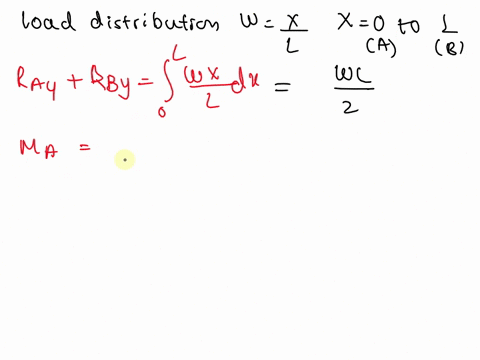 Load distribution W = x/L X = 0 to L
(A) (B)
RAy + RBy = ∫₀ᴸ wx/L dx = WL/2
MA =